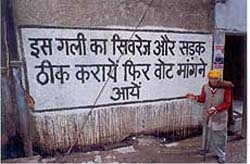 इस गली का सिवरेज और सड़क
ठीक करायें फिर वोट मांगने
आयें